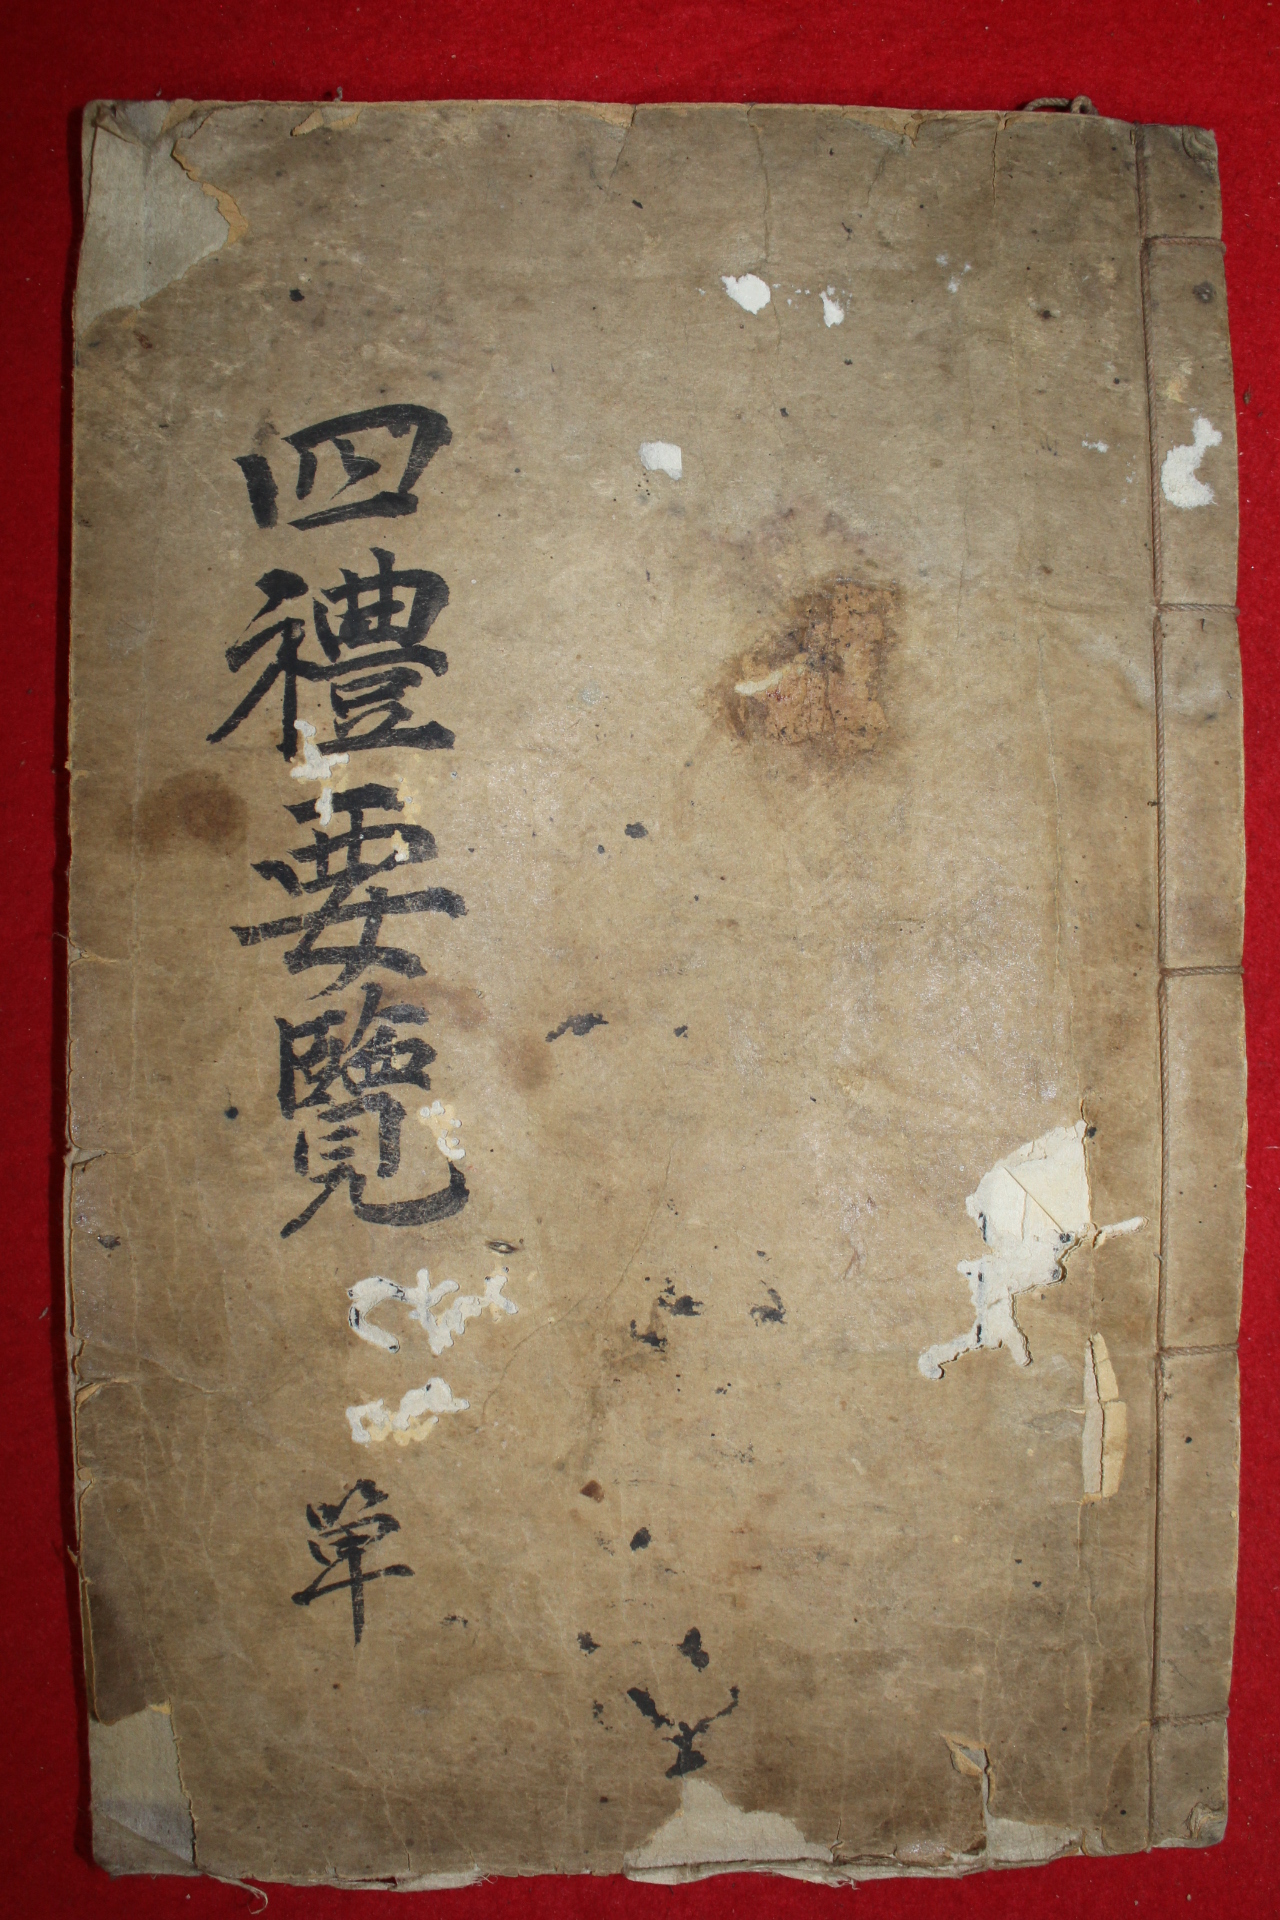 四禮要覽 單